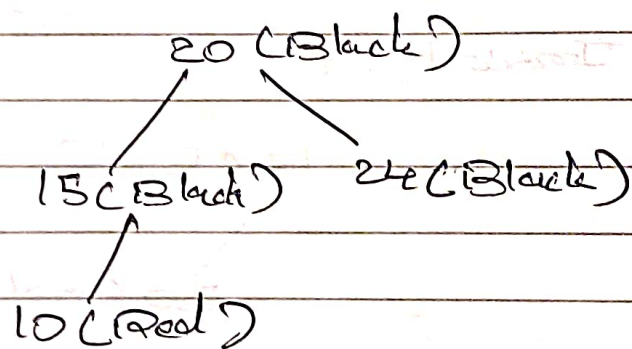 20 (Black)
15 (Black) 24 (Black)
10 (Red)